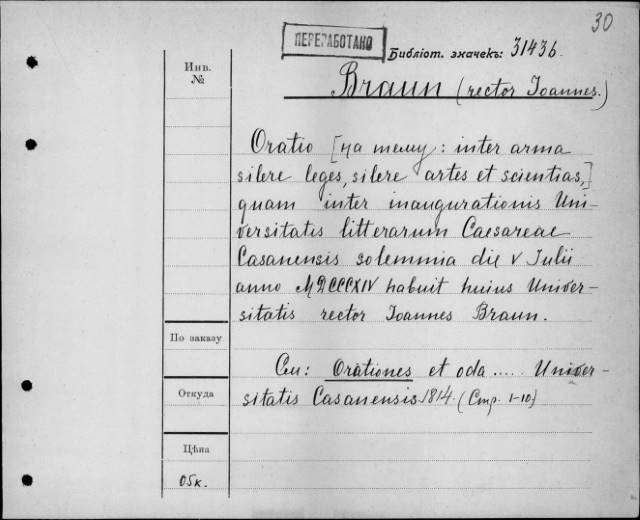 30
ПЕРЕРАБОТАНО
Библіот. значекъ: 31436.
Инв.
№
Braun (rector Joannes.)
Oratio [на тему: inter arma
silere leges, silere artes et scientias,]
quam inter inaugurationis Uni-
versitatis litterarum Caesareae
Casanensis solemnia die V Julii
anno MDCCCXIV habuit huius Univer-
sitatis rector Joannes Braun.
По заказу
См: Orationes et oda .... Univer-
Откуда
sitatis Casanensis 1814. (Стр. 1-10)
Цѣна
05к.